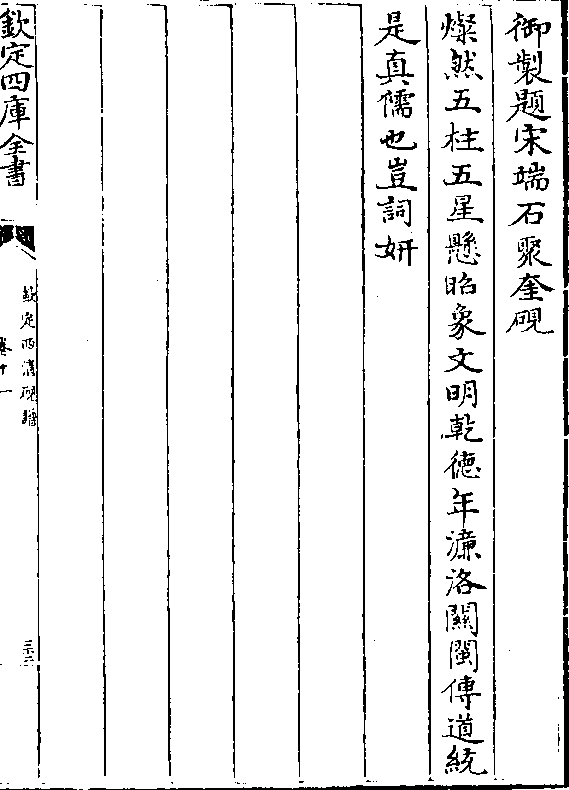 御製題宋端石聚奎硯
燦然五柱五星懸昭象文明乾德年濂洛關閩傳道統
是真儒也豈詞妍
欽定四庫全書
欽定西清硯譜
卷十一
三十二